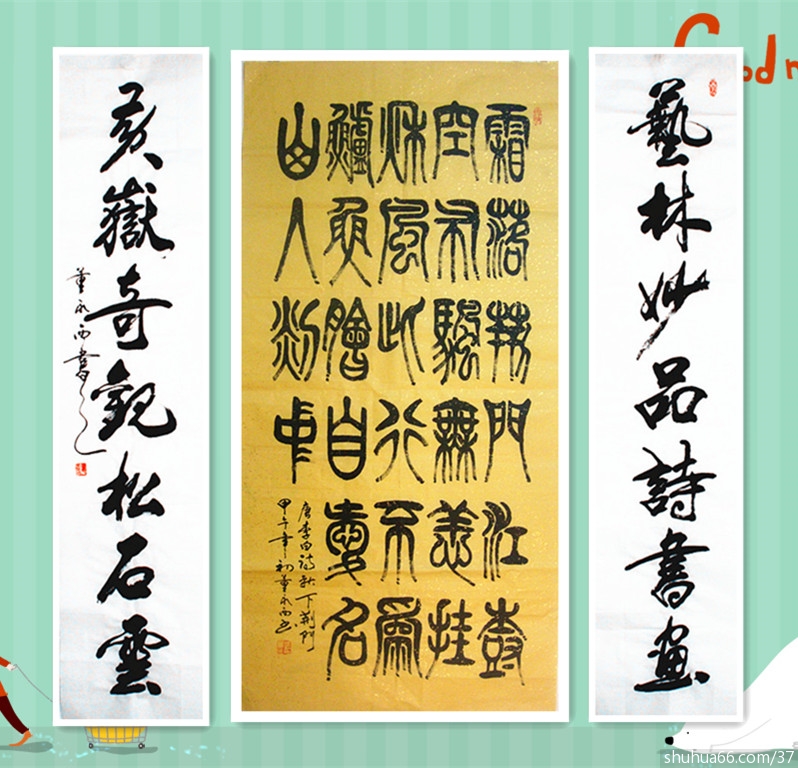 Good
藝林妙品詩書畫
霜落荊門江樹
空布颿無恙挂
秌風此行不為
鱸魚鱠自愛名
山入剡中
唐李白詩秋下荊門
甲午年初董永西書
黃嶽奇觀松石雲
董永西書
shuhua66.com/37